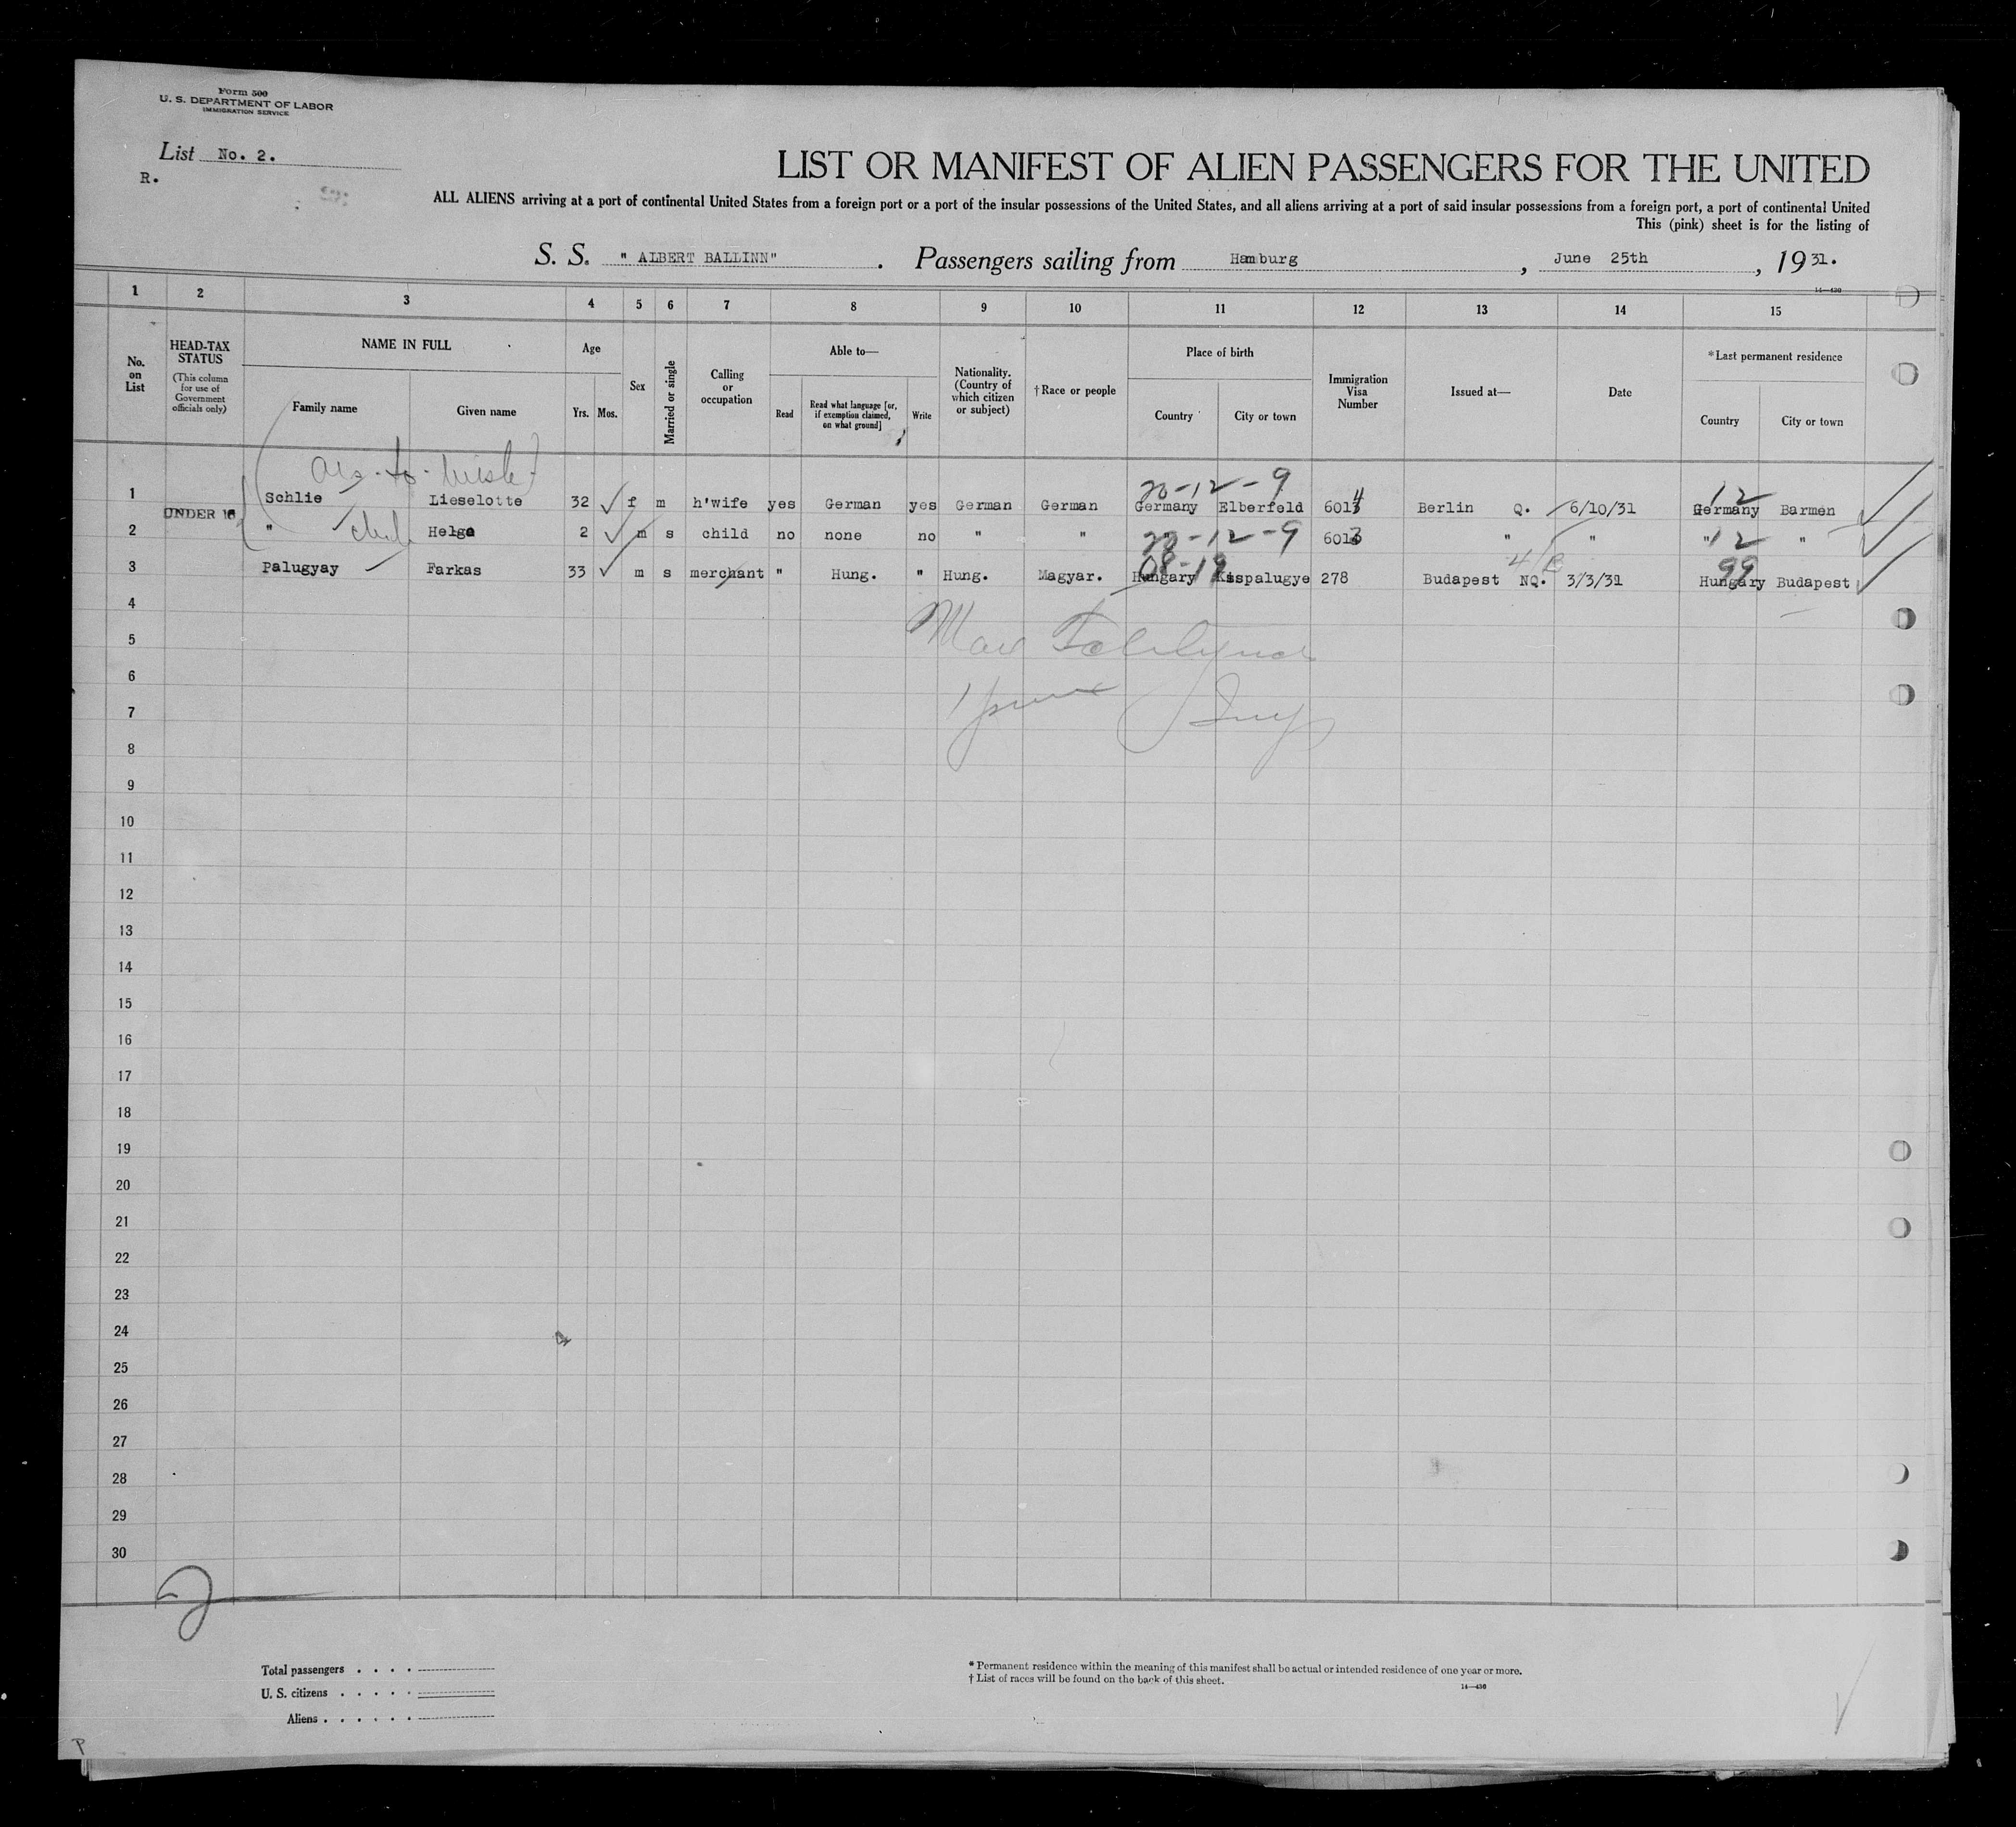 Form 500
U. S. DEPARTMENT OF LABOR
IMMIGRATION SERVICE
List No. 2.
R.
LIST OR MANIFEST OF ALIEN PASSENGERS FOR THE UNITED
ALL ALIENS arriving at a port of continental United States from a foreign port or a port of the insular possessions of the United States, and all aliens arriving at a port of said insular possessions from a foreign port, a port of continental United
This (pink) sheet is for the listing of
S. S. " ALBERT BALLINN" . Passengers sailing from Hamburg , June 25th , 1931.
14—430
1 2 3 4 5 6 7 8 9 10 11 12 13 14 15
No. on List
HEAD-TAX STATUS
(This column for use of Government officials only)
NAME IN FULL
Family name
Given name
Age
Yrs. Mos.
Sex
Married or single
Calling or occupation
Able to—
Read
Read what language [or, if exemption claimed, on what ground]
Write
Nationality. (Country of which citizen or subject)
†Race or people
Place of birth
Country
City or town
Immigration Visa Number
Issued at—
Date
*Last permanent residence
Country
City or town
20-12-9 12
1 Schlie Lieselotte 32 f m h'wife yes German yes German German Germany Elberfeld 6014 Berlin Q. 6/10/31 Germany Barmen
2 UNDER 16 " child Helge 2 m s child no none no " " " 20-12-9 6013 " " " 12 "
3 Palugyay Farkas 33 m s merchant " Hung. " Hung. Magyar. Hungary 08-19 Kispalugye 278 Budapest NQ. 3/3/31 Hungary 99 Budapest
4
5
6
7
8
9
10
11
12
13
14
15
16
17
18
19
20
21
22
23
24
25
26
27
28
29
30
2
Total passengers . . . .
U. S. citizens . . . . .
Aliens . . . . . .
* Permanent residence within the meaning of this manifest shall be actual or intended residence of one year or more.
† List of races will be found on the back of this sheet.
14—430
P